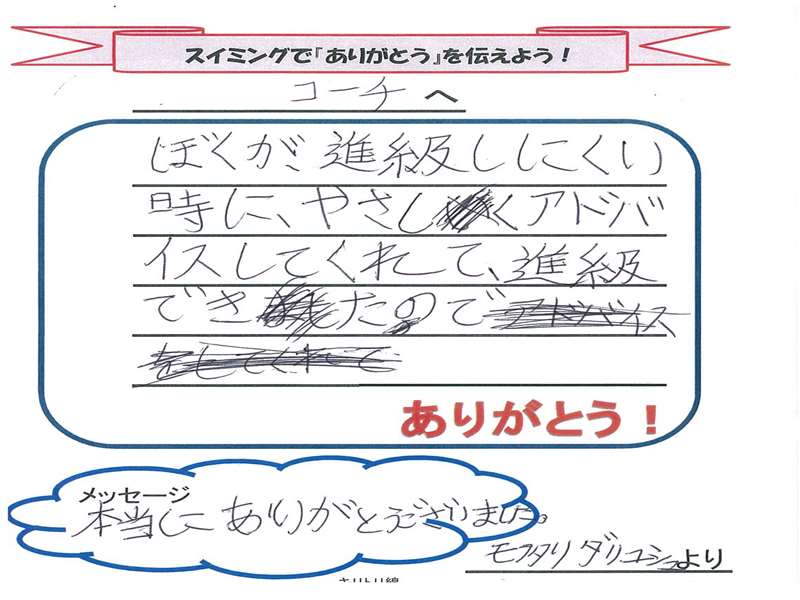 スイミングで『ありがとう』を伝えよう！
コーチ へ
ぼくが進級しにくい
時に、やさしくアドバ
イスしてくれて、進級
できたので
ありがとう！
メッセージ
本当に ありがとうございました。
モフタリ ダリユシュより
キリトリ線